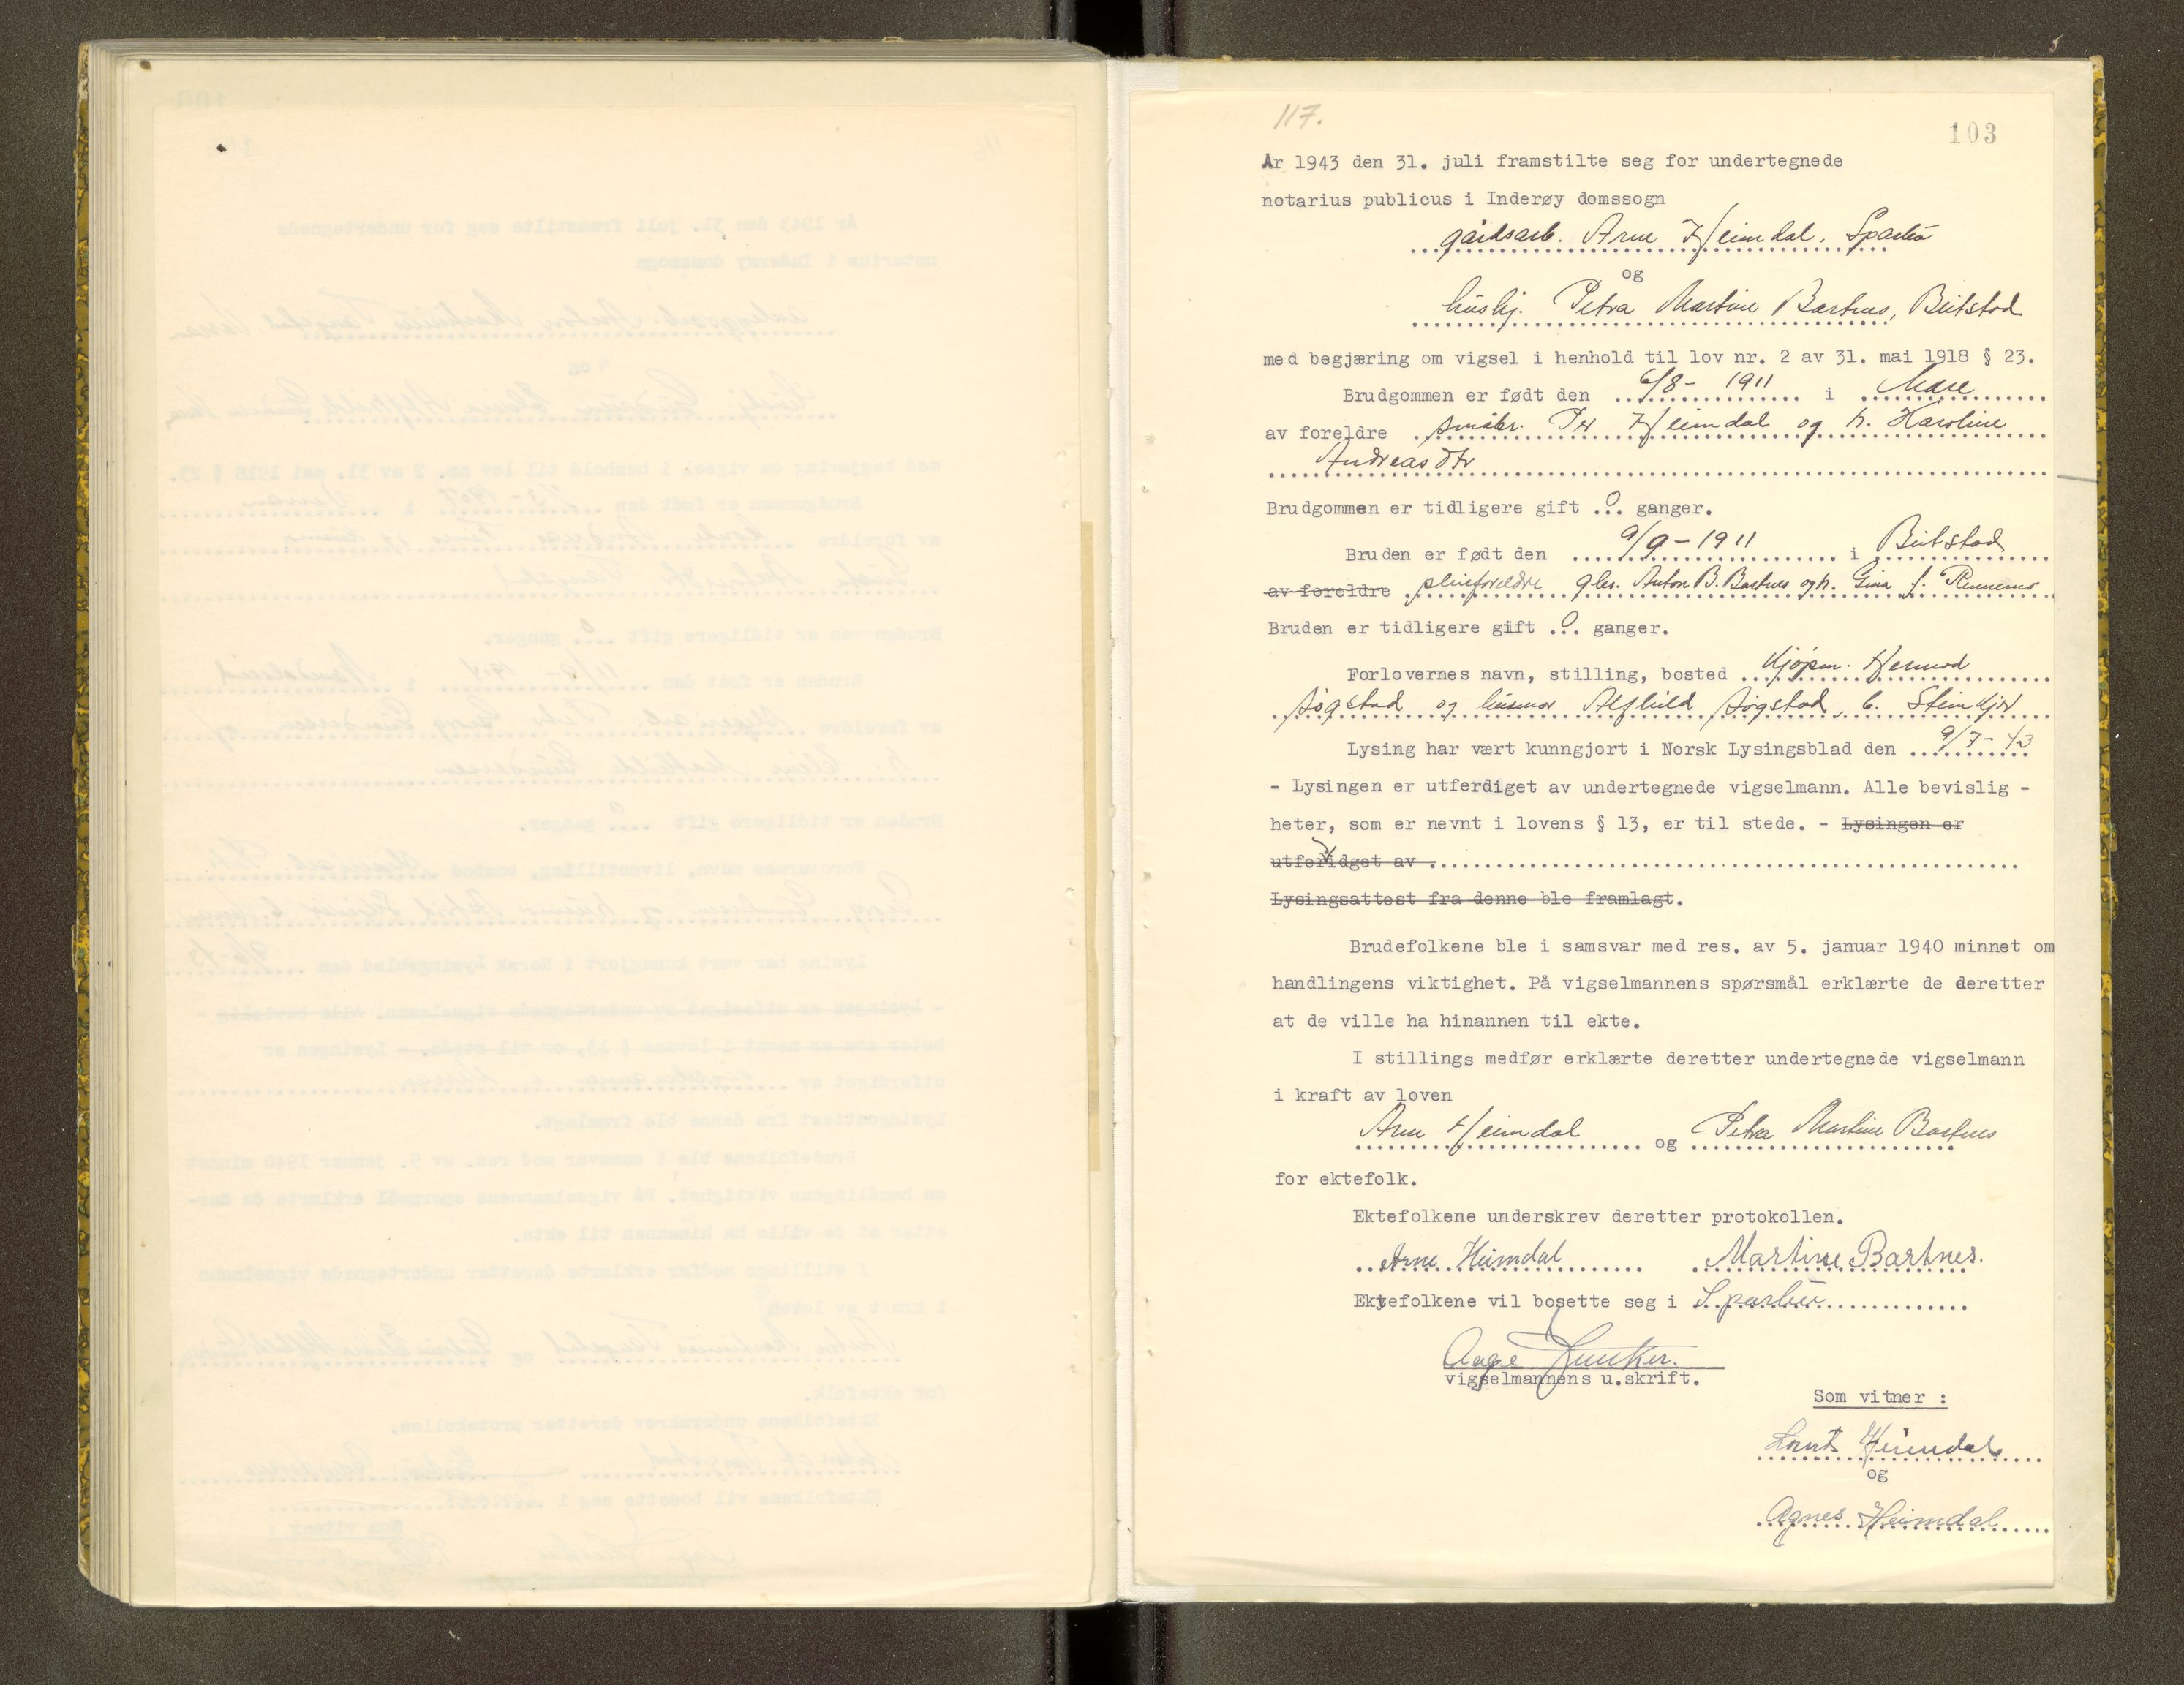 117.
103
År 1943 den 31. juli framstilte seg for undertegnede
notarius publicus i Inderøy domssogn
gårdsarb. Arne Heimdal, Sparbu
og
hushj. Petra Martine Bartnes, Beitstad
med begjæring om vigsel i henhold til lov nr. 2 av 31. mai 1918 § 23.
Brudgommen er født den 6/8 - 1911 i Mære
av foreldre småbr. Per Heimdal og h. Karoline
Andreasdtr
Brudgommen er tidligere gift 0 ganger.
Bruden er født den 9/9 - 1911 i Beitstad
av foreldre pleieforeldre gbr. Anton B. Bartnes og h. Gina f.
Bruden er tidligere gift 0 ganger.
Forlovernes navn, stilling, bosted kjøpm. Hermod
Søgstad og husmor Alfhild Søgstad, b. Steinkjer
Lysing har vært kunngjort i Norsk Lysingsblad den 9/7 - 43
- Lysingen er utferdiget av undertegnede vigselmann. Alle bevislig -
heter, som er nevnt i lovens § 13, er til stede. - Lysingen er
utferidget av
Lysingsattest fra denne ble framlagt.
Brudefolkene ble i samsvar med res. av 5. januar 1940 minnet om
handlingens viktighet. På vigselmannens spørsmål erklærte de deretter
at de ville ha hinannen til ekte.
I stillings medfør erklærte deretter undertegnede vigselmann
i kraft av loven
Arne Heimdal og Petra Martine Bartnes
for ektefolk.
Ektefolkene underskrev deretter protokollen.
Arne Heimdal Martine Bartnes.
Ektefolkene vil bosette seg i Sparbu
Aage Junker.
vigselmannens u.skrift.
Som vitner :
Lorents Heimdal
og
Agnes Heimdal